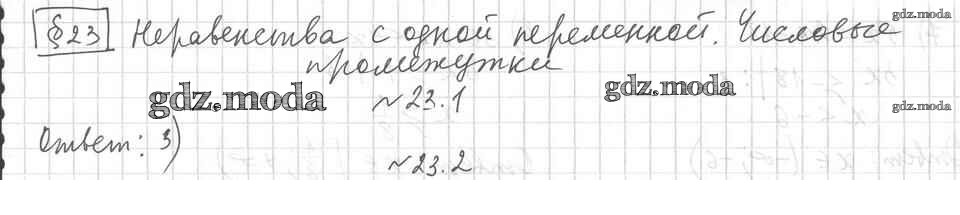 § 23 Неравенства с одной переменной. Числовые
промежутки
gdz.moda
gdz.moda
gdz.moda
gdz.moda
~ 23.1
Ответ: 3)
~ 23.2